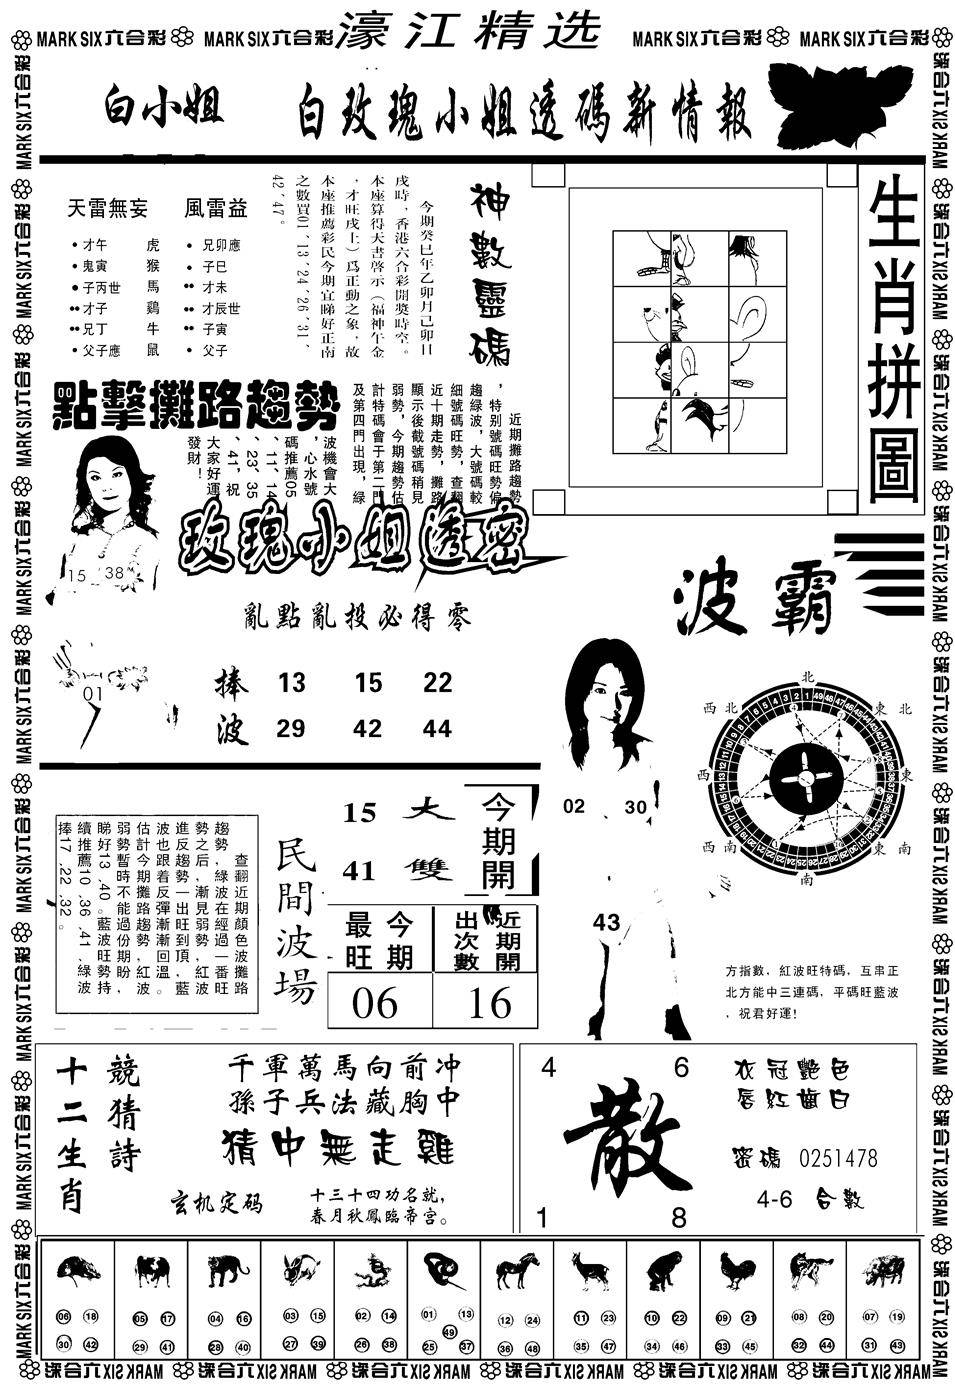 MARK SIX六合彩 MARK SIX六合彩 濠江精选 MARK SIX六合彩 MARK SIX六合彩
白小姐 白玫瑰小姐透碼新情報
天雷無妄 風雷益
才午 虎 兄卯應
鬼寅 猴 子巳
子丙世 馬 才未
才子 鷄 才辰世
兄丁 牛 子寅
父子應 鼠 父子
神數靈碼
今期癸巳年乙卯月己卯日
戌時，香港六合彩開獎時空。
本座算得天書啓示（福神午金
，才旺戌上）爲正動之象，故
本座推薦彩民今期宜睇好正南
之數買01、13、24、26、31、
42、47。
生肖拼圖
點擊攤路趨勢
近期攤路趨勢
，特别號碼旺勢偏
趨綠波，大號碼較
細號碼旺勢，查翻
近十期走勢，攤路
顯示後截號碼稍見
弱勢，今期趨勢估
計特碼會于第二門
及第四門出現，綠
波機會大
，心水號
碼推薦05
、11、14
、23、35
、41，祝
大家好運
發財！
15 38
玫瑰小姐透密
亂點亂投必得零
01
捧 13 15 22
波 29 42 44
波霸
北
西北 東北
西 東
西南 東南
南
02 30
43
方指數，紅波旺特碼，互串正
北方能中三連碼，平碼旺藍波
，祝君好運！
查翻近期顔色波攤路
趨勢，綠波在經過一番旺
勢之后，漸見弱勢，紅波
進反趨勢一出旺到頂，藍
波也跟着反彈漸漸回溫。
估計今期攤路趨勢紅波
弱勢暫時不能過份期盼，
睇好13、40。藍波旺勢持
續推薦10、36、41、綠波
捧17、22、32。
民間波場
15 大 今期開
41 雙
最旺 今期 出次數 近期開
06 16
十二生肖 競猜詩
千軍萬馬向前冲
孫子兵法藏胸中
猜中無走雞
玄机定码 十三十四功名就，
春月秋鳳臨帝宮。
4 6
散
1 8
衣冠艷色
唇紅齒白
密碼 0251478
4-6 合數
06 18 05 17 04 16 03 15 02 14 01 13 12 24 11 23 10 22 09 21 08 20 07 19
49
30 42 29 41 28 40 27 39 26 38 25 37 36 48 35 47 34 46 33 45 32 44 31 43
MARK SIX六合彩 MARK SIX六合彩 MARK SIX六合彩 MARK SIX六合彩 MARK SIX六合彩 MARK SIX六合彩